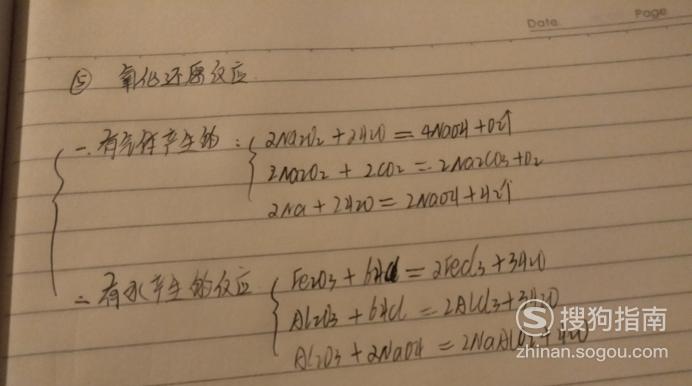 Date Page
⑤ 氧化还原反应
一.有气体产生的:
2Na2O2+2H2O=4NaOH+O2↑
2Na2O2+2CO2=2Na2CO3+O2
2Na+2H2O=2NaOH+H2↑
二.有水产生的反应
Fe2O3+6HCl=2FeCl3+3H2O
Al2O3+6HCl=2AlCl3+3H2O
Al2O3+2NaOH=2NaAlO2+H2O
S 搜狗指南
zhinan.sogou.com